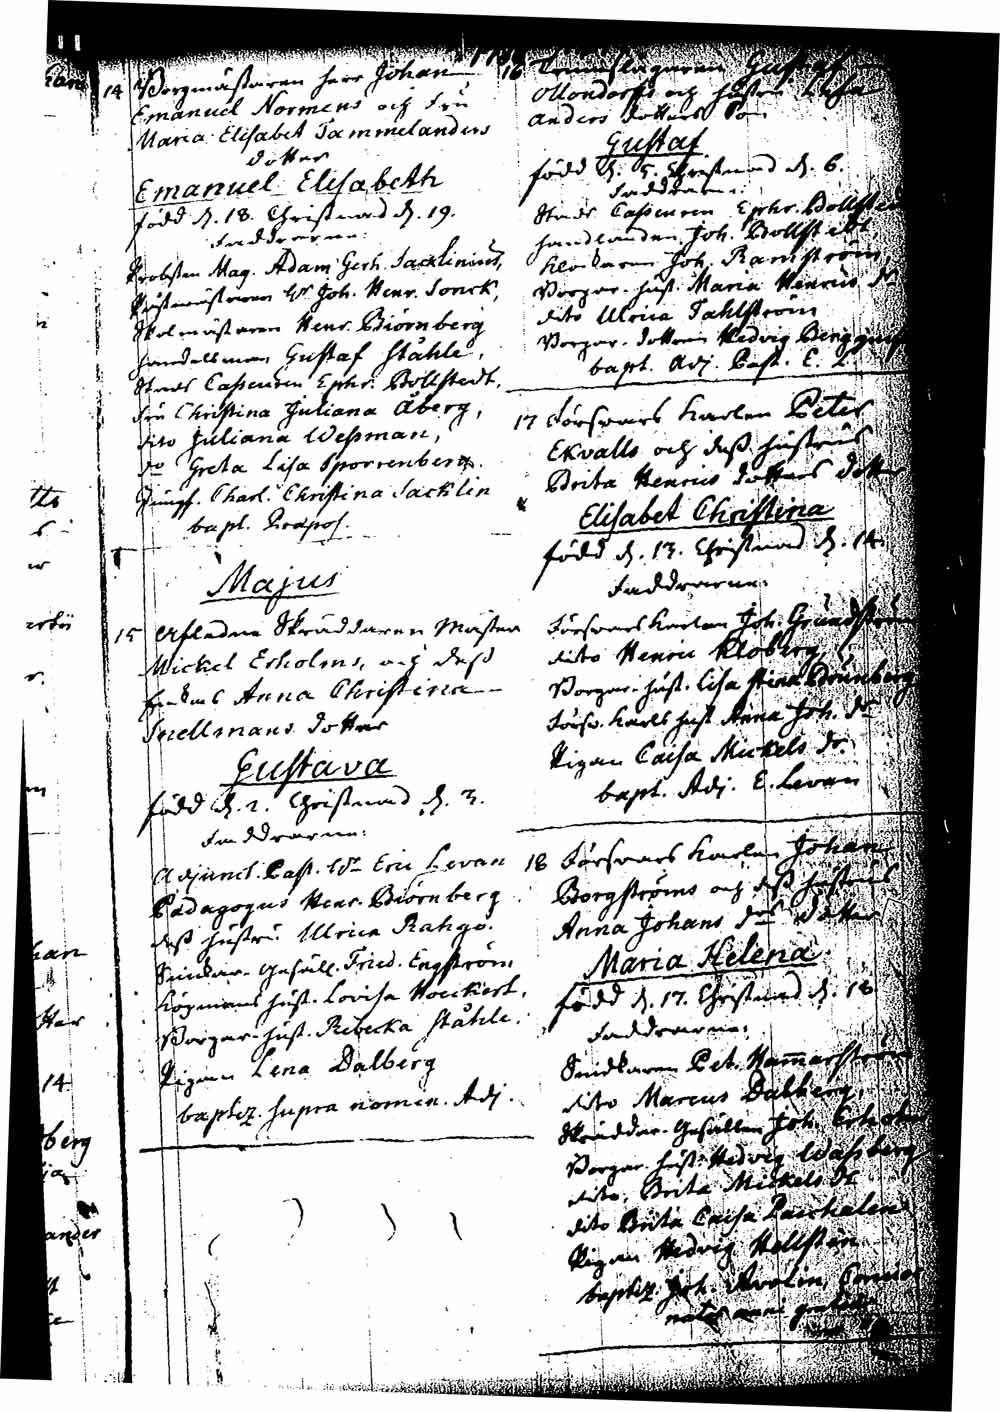 14 Borgmästaren herr Johan
Emanuel Normens och Fru
Maria Elisabet Tammelanders
dotter
Emanuel Elisabeth
född d. 18. Christnad d. 19.
Faddrarne:
Probsten Mag. Adam Gerh. Sacklinius,
Joh. Henr. Sonck,
Skolmästaren Henr. Biörnberg
handelsman Gustaf Ståhle,
Stads Casseuren Ephr. Bollstedt,
Fru Christina Juliana Åberg,
dito Juliana Wessman,
do Greta Lisa Sporrenberg.
Jungf. Charl. Christina Sacklin
bapt. Præpos.
Majus
15 Afledne Skräddaren Mästar
Mickel Erholms, och dess
Anna Christina
Snellmans dotter
Gustava
född d. 2. Christnad d. 3.
Faddrarne:
Adjunct. Past. Hr Eric Levan
Pædagogus Henr. Biörnberg
dess hustru Ulrica Rahgo.
Smidar-Gesäll. Fried. Engström
Köpmans hust. Lovisa Hoeckert.
Borgar-hust. Rebecka Ståhle.
Pigan Lena Dalberg
baptiz. supra nomin. Adj.
16 Trumslagaren Gustaf
Ollondorfs och hustru
anders dotters Son
Gustaf
född d. 5. Christnad d. 6.
Faddrarne:
Stads Casseuren Ephr. Bollstedt
handlanden Joh. Bollstedt,
Klockaren Joh. Ramström,
Borgar-hust. Maria Henrics dr
dito Ulrica Tahlström
Borgar-dottren Hedvig Bergquist
bapt. Adj. Past. E. L.
17 Försvars Karlen Peter
Ekvalls och dess hustrus
Brita Henrics dotters dotter
Elisabet Christina
född d. 13. Christnad d. 14.
Faddrarne:
Försvars karlen Joh. Grundström
dito Henric Kloberg,
Borgar-hust. Lisa Stina Brunberg
Försv. Karls hust. Anna Joh. dr
Pigan Caisa Mickels dr.
bapt. Adj. E. Levan
18 Försvars karlen Johan
Borgströms och dess hustrus
Anna Johans drs dotter
Maria Helena
född d. 17. Christnad d. 18
Faddrarne:
Smidaren Pet. Hammarström
dito Marcus Dalberg,
Skräddar-Gesällen Joh. Erholm
Borgar-hust. Hedvig Wassberg
dito. Brita Mickels dr
dito Brita Caisa Paschalen
Pigan Hedvig Hellsten
baptiz. Joh.